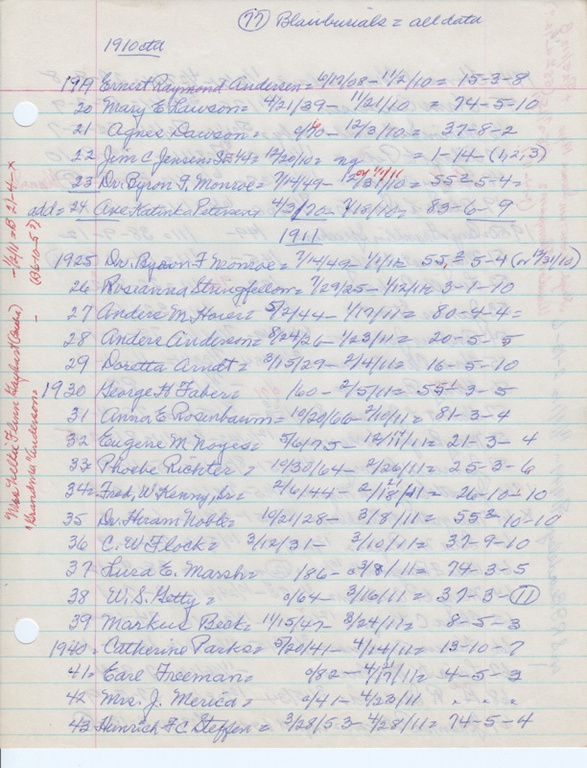 (77) Blairburials = all data
1910 ctd
1919 Ernest Raymond Andersen = 6/17/68 - 11/2/10 = 15-3-8
20 Mary E Lawson = 4/21/39 - 11/21/10 = 74-5-10
21 Agnes Dawson = 12/3/10 = 37-8-2
22 Jim C Jensen 12/20/10 = ng = 1-14-(1,2,3)
23 Dr. Byron F. Monroe = 7/14/49 - 12/31/10 = 55-5-4 =
or 1/1/11
add = 24 Ane Katinka Petersen 4/3/70 - 7/18/10 = 83-6-9
1911
1925 Dr. Byron F Monroe = 7/14/49 - 1/1/11 = 55-5-4 (or 12/31/10)
26 Roseanna Stringfellow = 7/29/25 - 1/12/11 = 3-1-10
27 Anders M. Hover = 5/2/44 - 1/17/11 = 80-4-4 =
28 Anders Anderson = 8/24/26 - 1/23/11 = 20-5-5
29 Doretta Arndt = 3/15/29 - 2/4/11 = 16-5-10
1930 George H Faber = /60 - 2/5/11 = 55-3-5
31 Anna E Rosenbaum = 10/20/66 - 2/10/11 = 81-3-4
32 Eugene M Noyes = 5/6/75 - = 21-3-4
33 = Phoebe Richter = 10/30/64 - 2/26/11 = 25-3-6
34 = Fred, W. Kenny, Sr = 2/6/44 - = 26-10-10
35 Dr. Hiram Noble = 10/21/28 - 3/8/11 = 55-10-10
36 C. W. Flock = 3/12/31 - 3/10/11 = 37-9-10
37 Luza E. Marsh = /86 - = 74-3-5
38 W. S. Getty = 0/64 - 3/16/11 = 37-3-(11)
39 Markus Beck = 11/15/47 - 3/24/11 = 8-5-3
1940 = Catherine Parks = 5/20/41 - 4/14/11 = 13-10-7
41 = Earl Freeman = 0/82 - = 4-5-2
42 Mrs. J. Merica = 0/41 - 4/23/11
43 Heinrich F C Steffen = 3/28/53 - 4/28/11 = 74-5-4
Mae Nellie Flinn
Grandma Anderson =